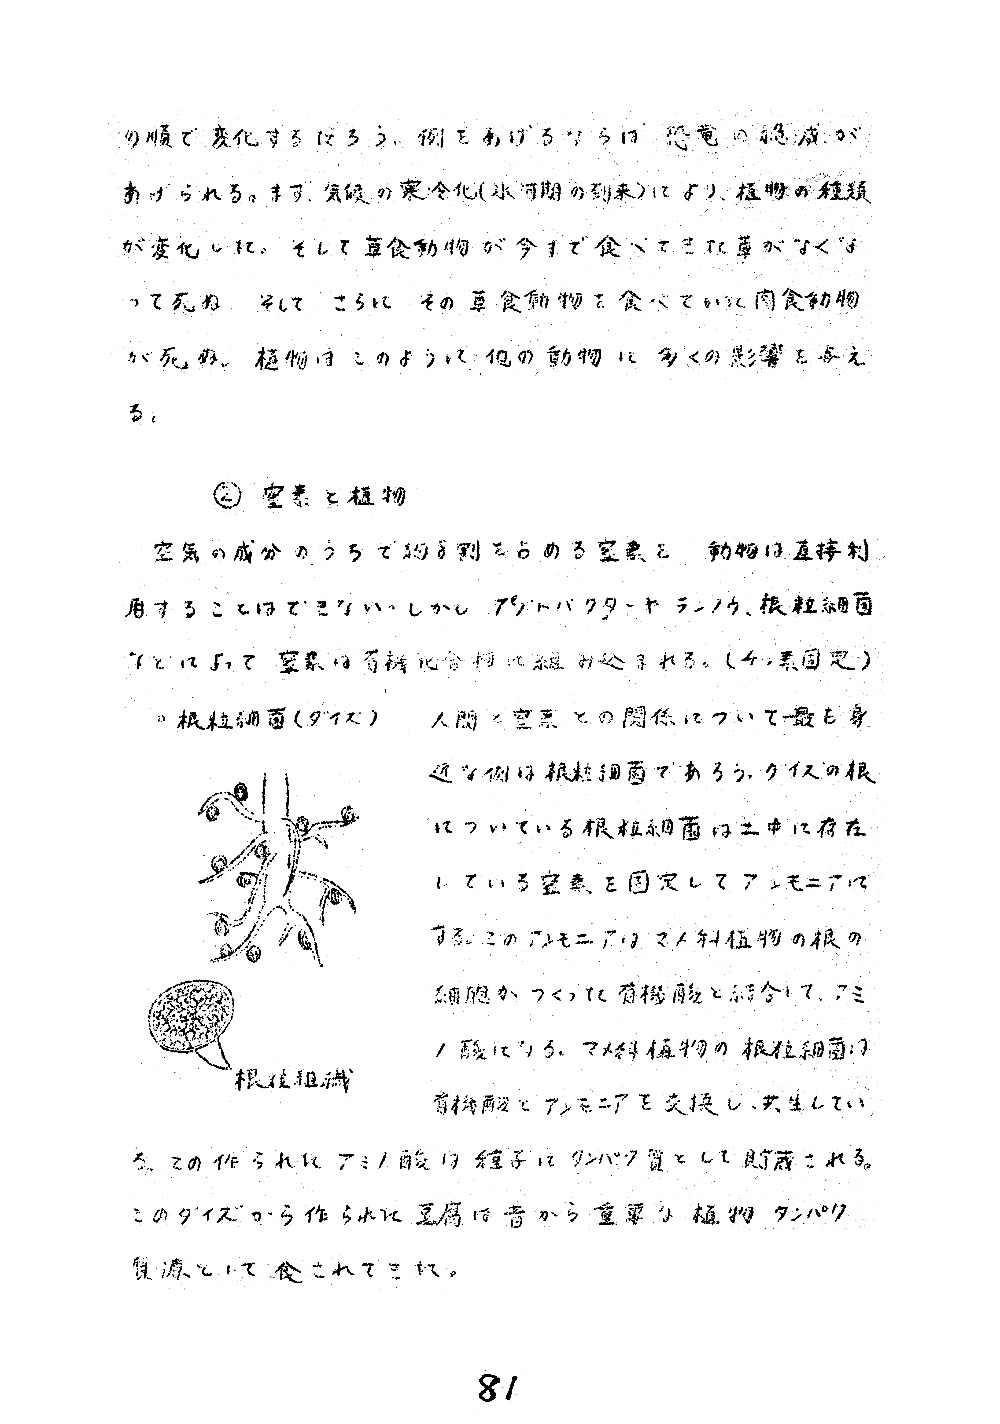 の順で変化するだろう。例をあげるならば 恐竜の絶滅が
あげられる。まず、気候の寒冷化(氷河期の到来)により、植物の種類
が変化した。そして草食動物が今まで食べてきた草がなくな
って死ぬ そして さらに その草食動物を食べていた肉食動物
が死ぬ。植物はこのように他の動物に多くの影響を与え
る。
② 窒素と植物
空気の成分のうちで約8割を占める窒素を 動物は直接利
用することはできない。しかし アゾトバクターヤ ランソウ、根粒細菌
などによって 窒素は有機化合物に組み込まれる。(チッ素固定)
○根粒細菌(ダイズ)
人間と窒素との関係について最も身
近な例は根粒細菌であろう。ダイズの根
についている根粒細菌は土中に存在
している窒素を固定してアンモニアに
する。このアンモニアはマメ科植物の根の
細胞がつくった有機酸と結合して、アミ
ノ酸になる。マメ科植物の根粒細菌は
有機酸とアンモニアを交換し、共生してい
る。この作られたアミノ酸は種子にタンパク質として貯蔵される。
このダイズから作られた豆腐は昔から重要な植物タンパク
質源として食されてきた。
根粒組織
81